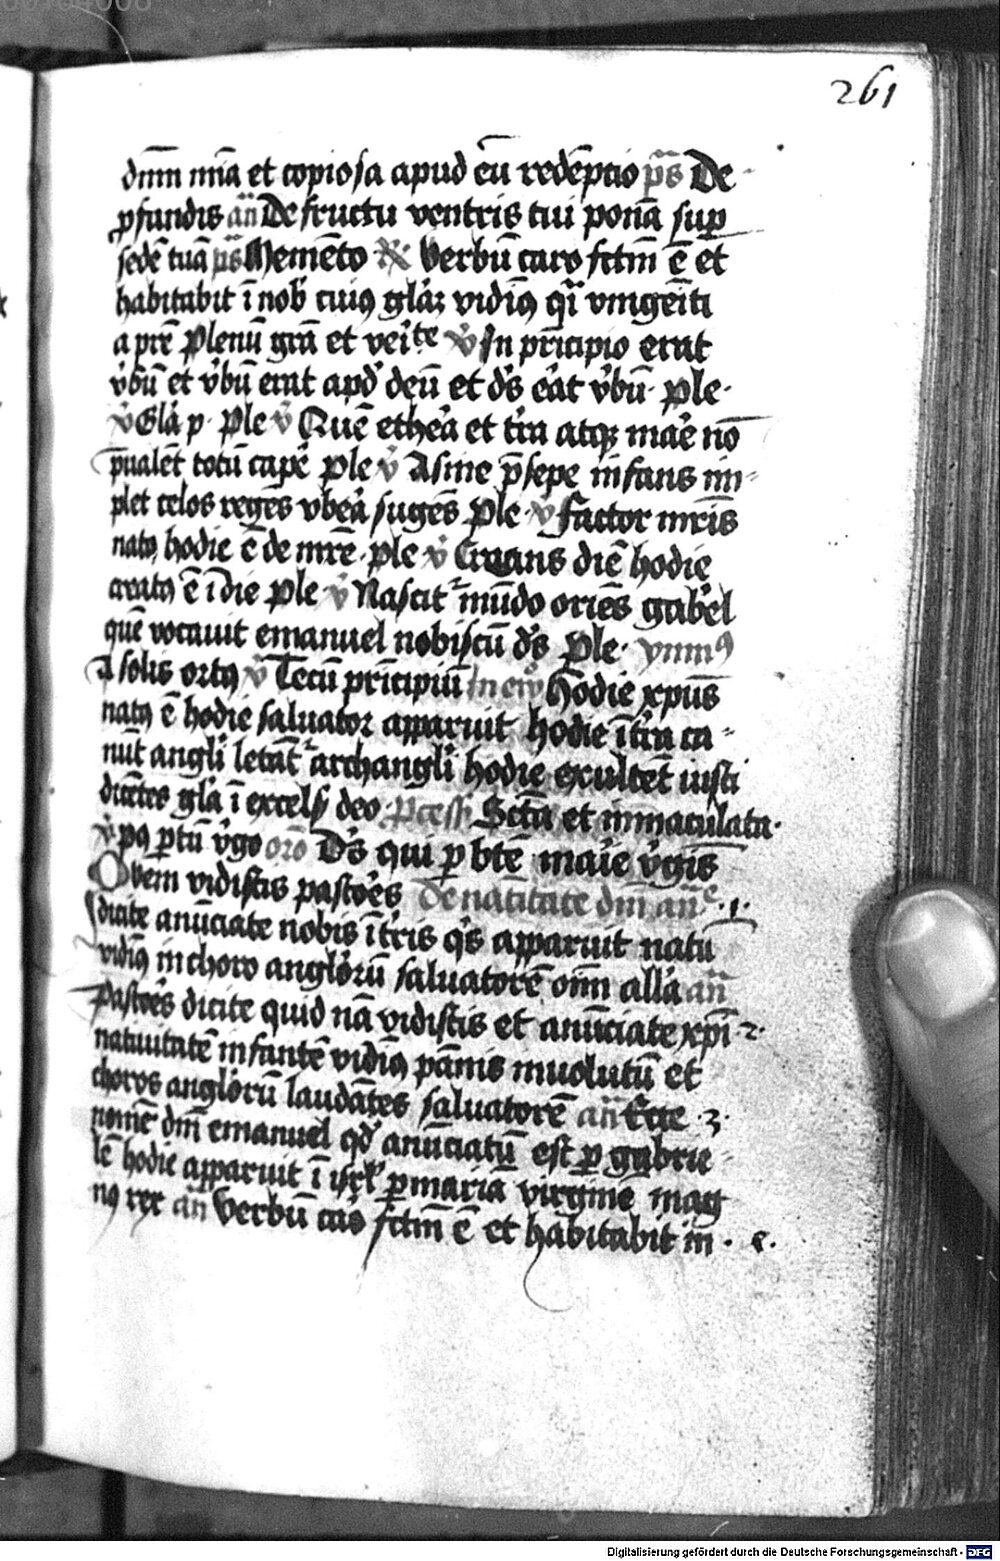 261
dnm mīa et copiosa apud eū redēptio ps̄ De
ꝓfundis an̄ De fructu ventris tui ponā suꝑ
sedē tuā ps̄ Memēto ℟ Verbū caro fctm̄ ē et
habitabit ī nob cuiꝯ glāꝫ vidiꝯ qͥ vnigeīti
a pr̄e Plenū grā et veīte ℣ In pricipio erat
v̓bū et v̓bū erat apd̓ deū et ds̄ e͛at v̓bū · ple ·
℣ Glā p · Ple ℣ Quē ethe͛a et tr̄a atqꝫ mae͛ nō
p̄ualēt totū cape͛ ple ℣ Asine p̄sepe infans im
plet celos reges vbe͛a sugēs Ple · ℣ factor mr̄is
natꝯ hodie ē de mr̄e · ple ℣ Creans diē hodie
creatꝯ ē ī die Ple ℣ Nascit᷑ mūdo oriēs gab͛el
quē vocauit emanuel nobiscū ds̄ Ple · ymnꝯ
A solis ortꝯ ℣ Tecū pricipiū In euº Hodie xpūs
natꝯ ē hodie saluator apparuit hodie ī tr̄a ca
nūt angli letāt᷑ archangli hodie exultēt iusti
dicētes glā ī excels̄ deo Sctā et inmaculata ·
℣ pꝯ ꝑtū v̓go orō Ds̄ qui ꝑ btē maīe v̓gis
Qvem vidistis pasto͛es De natiitate dm̄ an̄ᵉ · 1 ·
dicite anūciate nobis ī tr̄is qͥs apparuit natū
vidiꝯ in choro anglo͛rū saluatorē om̄ allā an̄
Pasto͛es dicite quid nā vidistis et anūciate xpī 2 ·
natiuitatē infantē vidiꝯ pānis inuolutū et
choros anglo͛rū laudātes saluatorē an̄ Ecce 3 ·
nomē dm̄ emanuel qd̓ anūciatū est ꝑ gabrie
lē hodie apparuit ī isrl̓ ꝑ mariā virginē mag
nꝯ rex an̄ Verbū caro fctm̄ ē et habitabit in ·
Digitalisierung gefördert durch die Deutsche Forschungsgemeinschaft - DFG